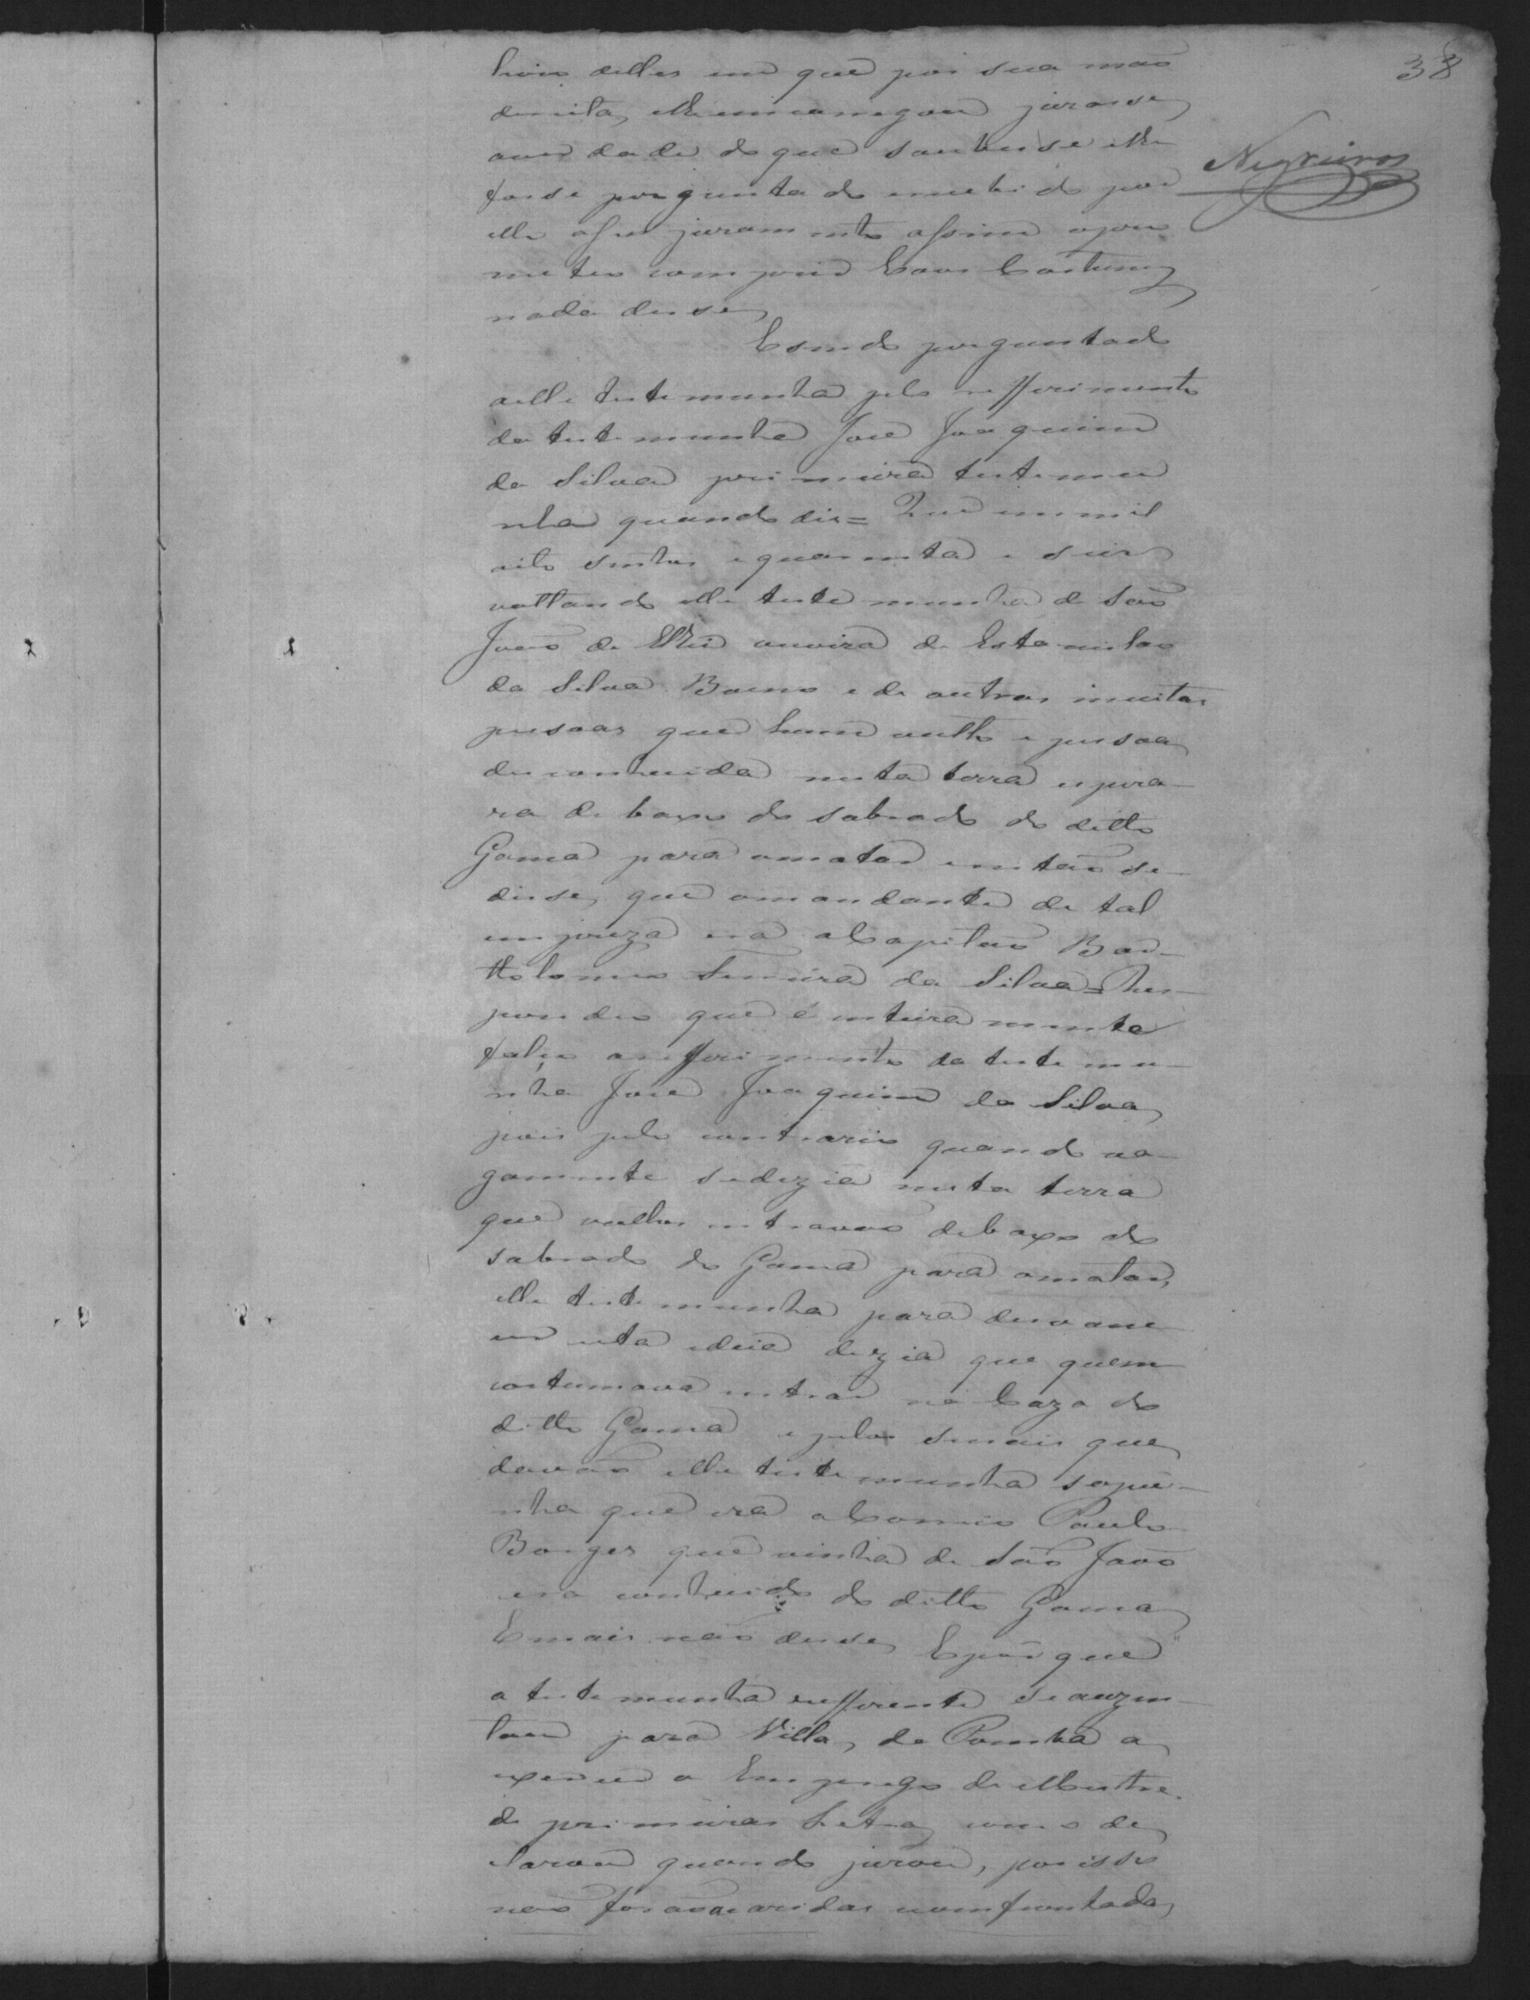 38
Negreiros
livro delles em que pos sua mão
dereita, elhe emcarregou jurasse,
averdade do que soubesse elhe
fosse perguntado erecebido por
elle oseu juramento assim opro
meteo comprir Eaos Costumes
nada disse,
Esendo perguntado
aelle testemunha pelo refferimento
da testemunha José Joaquim
da Silva primeira testemu
nha quando dis = Que em mil
oito sentos equarenta e seis
voltando elle testemunha de São
João de ElRei ouvira de Estanislao
da Silva Bueno e de outras muitas
pessoas que hum vulto e pessoa
desconhecida nesta terra espera-
va de baxo do sobrado do ditto
Gama para omatar e então se
disse, que omandante de tal
empreza era oCapitão Bar-
tholomeo Ferreira da Silva = Res-
pondeo que é inteiramente
falço orefferimento da testemu-
nha José Joaquim da Silva,
pois pelo contrario quando va-
gamente sedezia nesta terra
que vultos entravão debaxo do
sobrado do Gama para omatar,
elle testemunha para desvane
cer esta edeia dezia que quem
costumava entrar na Caza do
ditto Gama e pelos senais que,
davão elle testemunha sopu-
nha que era oComeio Paulo
Borges que vinha de São João
era conhecido do ditto Gama,
Emais não disse, Epor que
a testemunha refferente se auzen-
tou para Villa, da Pomba a,
exercer o Emprego de Mestre
de primeiras Letras, como de,
clarou quando jurou, por isso
não forão acariadas e comfrontadas,